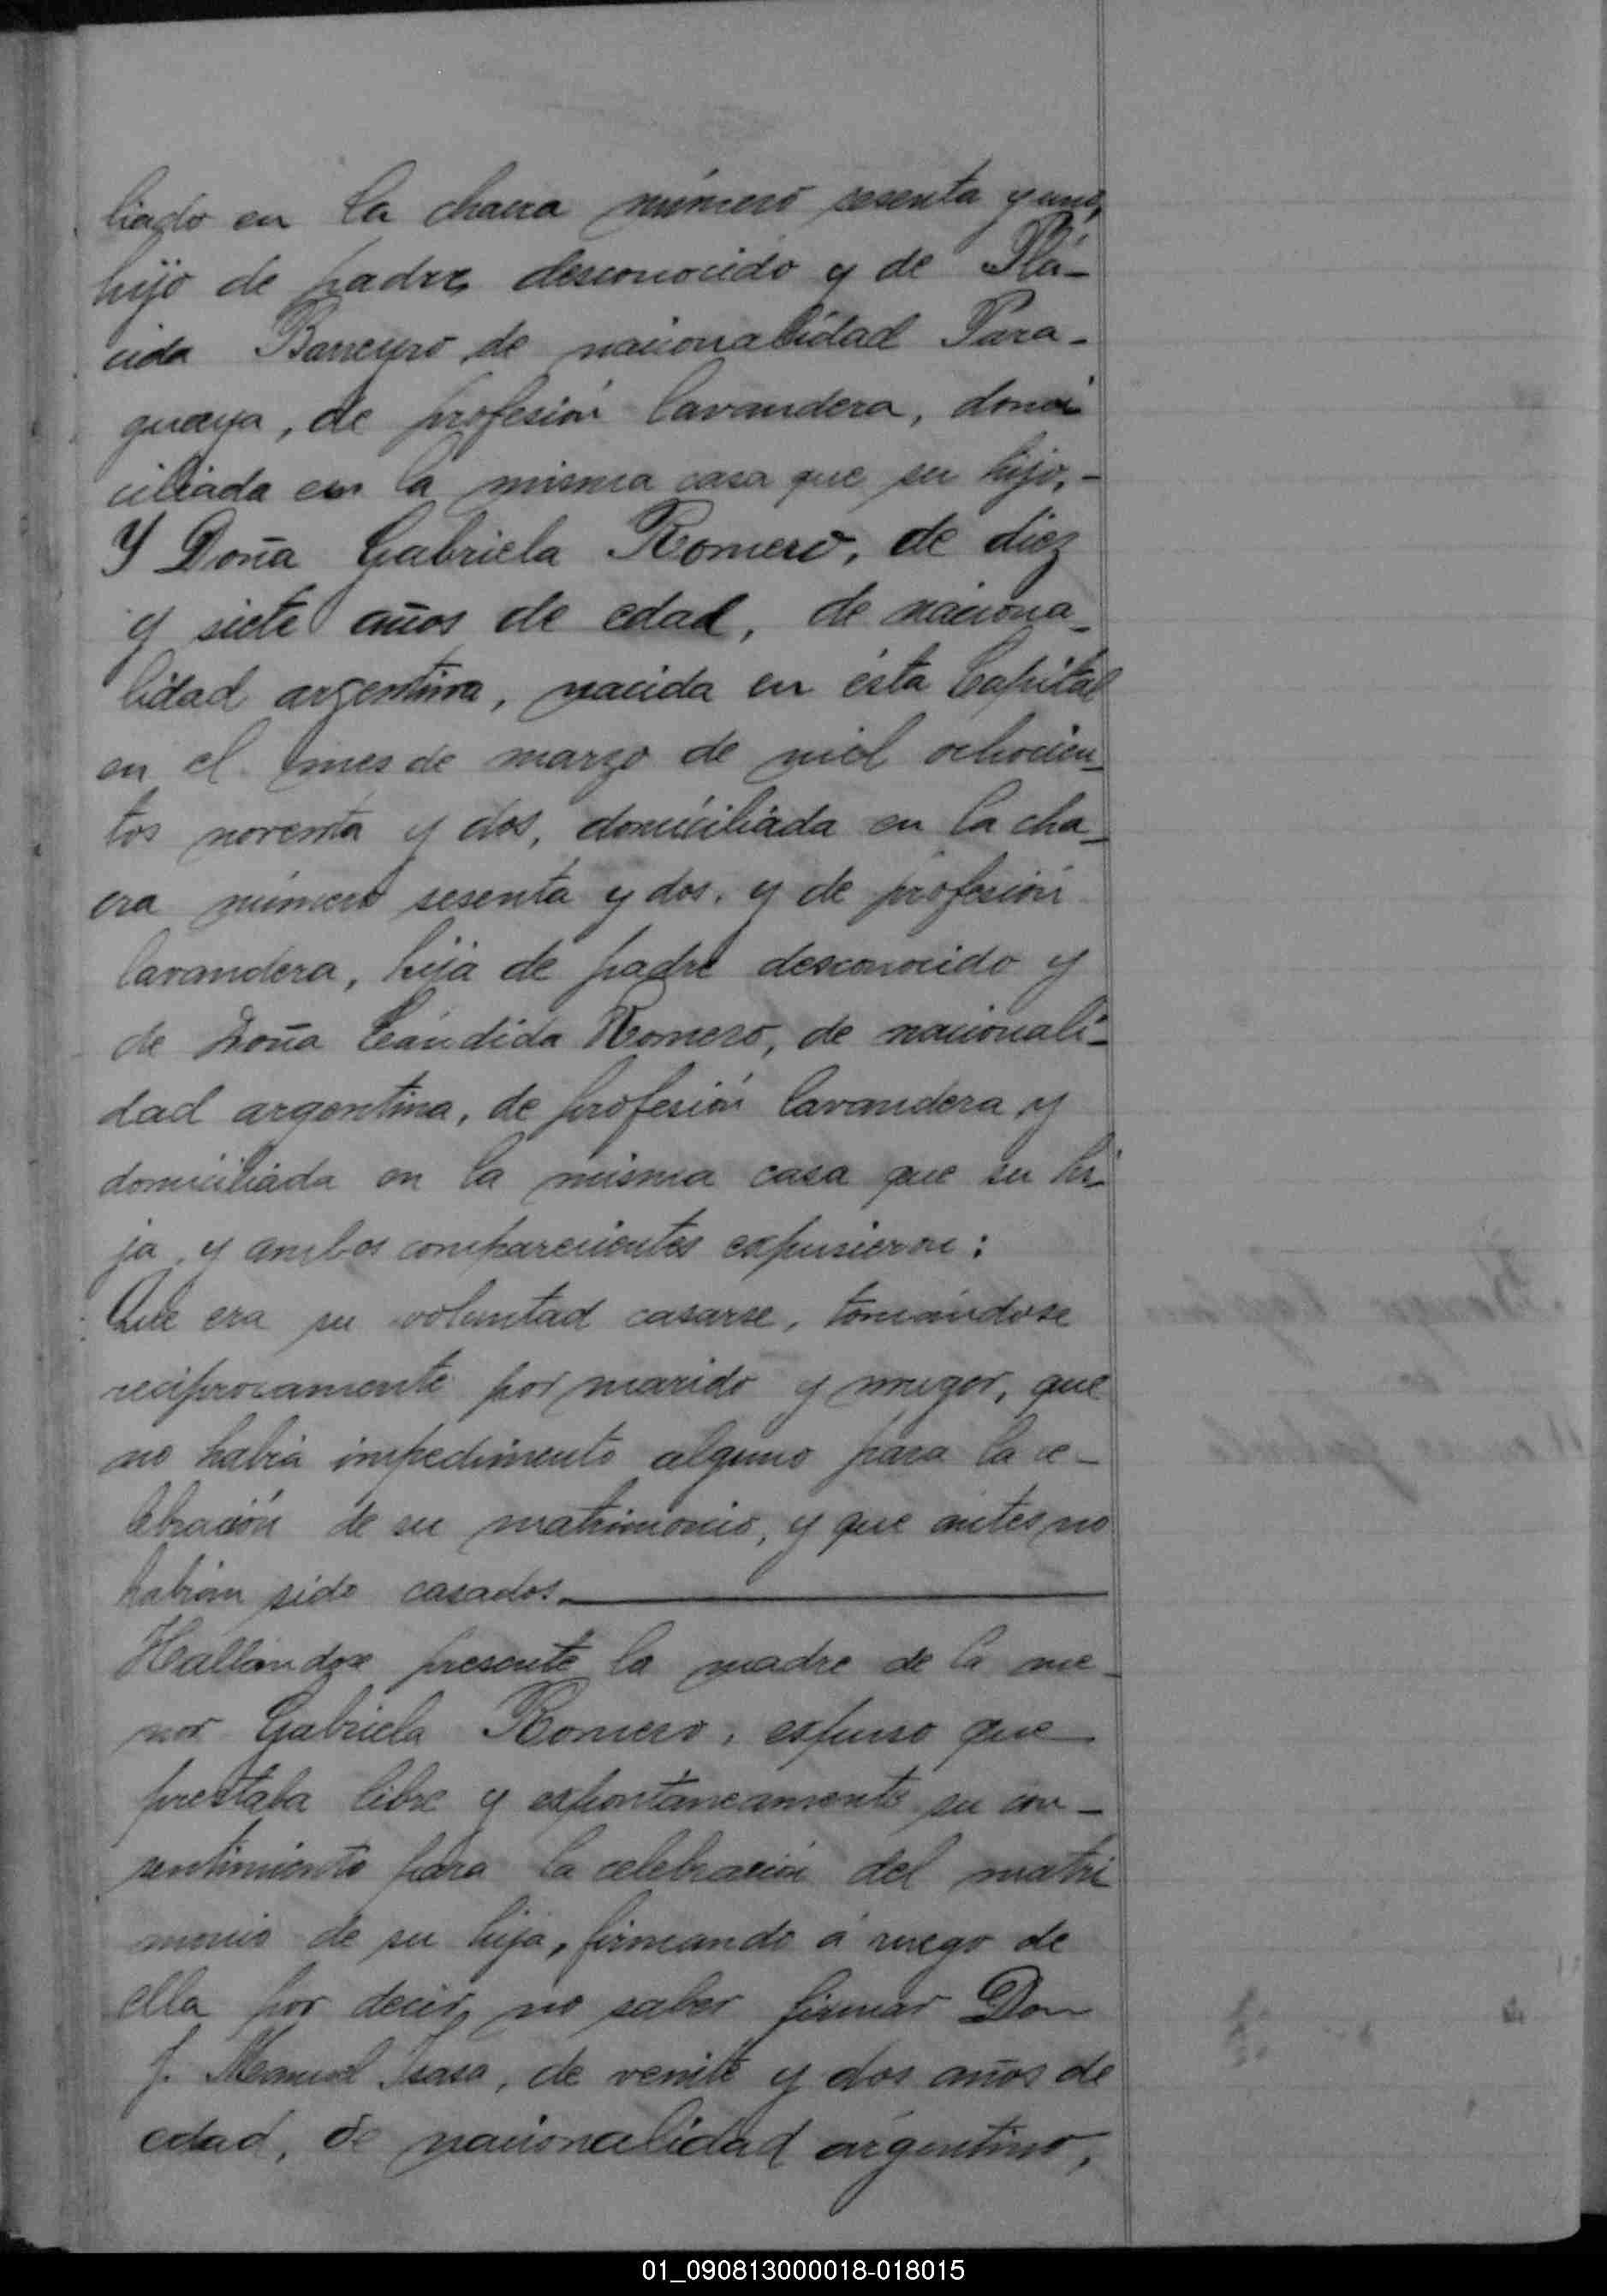 liado en la chacra número sesenta y uno,
hijo de padre desconocido y de Plá-
cida Barreyro de nacionalidad Para-
guaya, de profesión lavandera, domi
ciliada en la misma casa que su hijo,-
Y Doña Gabriela Romero, de diez
y siete años de edad, de naciona-
lidad argentina, nacida en ésta Capital
en el mes de marzo de mil ochocien-
tos noventa y dos, domiciliada en la cha-
cra número sesenta y dos, y de profesión
lavandera, hija de padre desconocido y
de Doña Cándida Romero, de nacionali-
dad argentina, de profesión lavandera y
domiciliada en la misma casa que su hi-
ja, y ambos comparecientes expusieron:
Que era su voluntad casarse, tomándose
recíprocamente por marido y muger, que
no había impedimento alguno para la ce-
lebración de su matrimonio, y que antes no
habían sido casados.
Hallándose presente la madre de la me-
nor Gabriela Romero, expuso que
prestaba libre y expontáneamente su con-
sentimiento para la celebración del matri
monio de su hija, firmando á ruego de
ella por decir no saber firmar Don
J. Manuel Isasa, de veinte y dos años de
edad, de nacionalidad argentino,
01_090813000018-018015